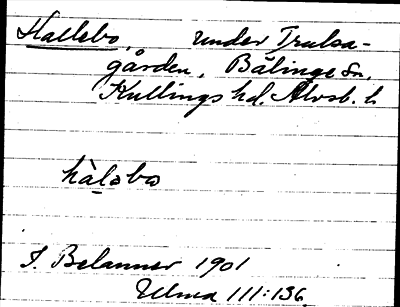 Hallebo, under Trulsa-
gården, Bälinge sn.
Kullings hd. Älvsb. l.
hàlәbo
I. Belanner 1901
Ulma 111:136.